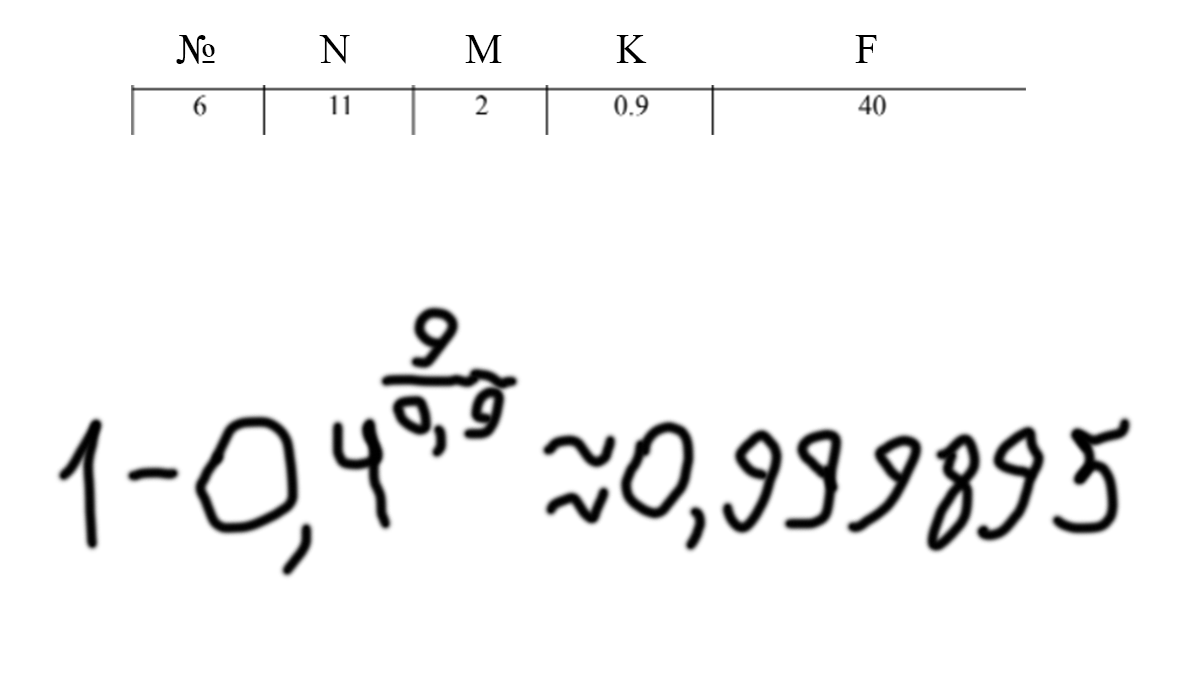 № N M K F
6 11 2 0.9 40
1-0,4^(9/0,9) ≈ 0,999895